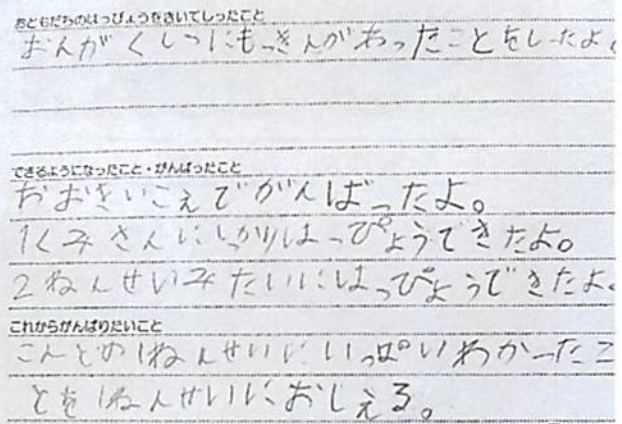 おともだちのはっぴょうをきいてしったこと
おんがくしつにもっきんがあったことをしったよ。
できるようになったこと・がんばったこと
おおきいこえでがんばったよ。
1くみさんにしっかりはっぴょうできたよ。
2ねんせいみたいにはっぴょうできたよ。
これからがんばりたいこと
こんどの1ねんせいにいっぱいわかったこ
とを1ねんせいにおしえる。